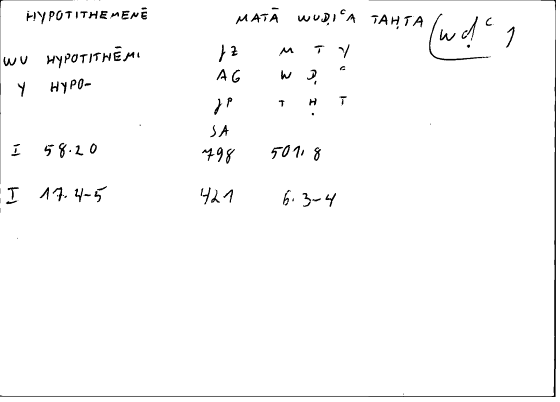 HYPOTITHEMENĒ MATĀ WUḌIʿA TAḤTA (wḍʿ)
WU HYPOTITHĒMI JZ M T Y
Y HYPO- AG W Ḍ ʿ
JP T Ḥ T
SA
I 58.20 798 501.8
I 17.4-5 421 6.3-4